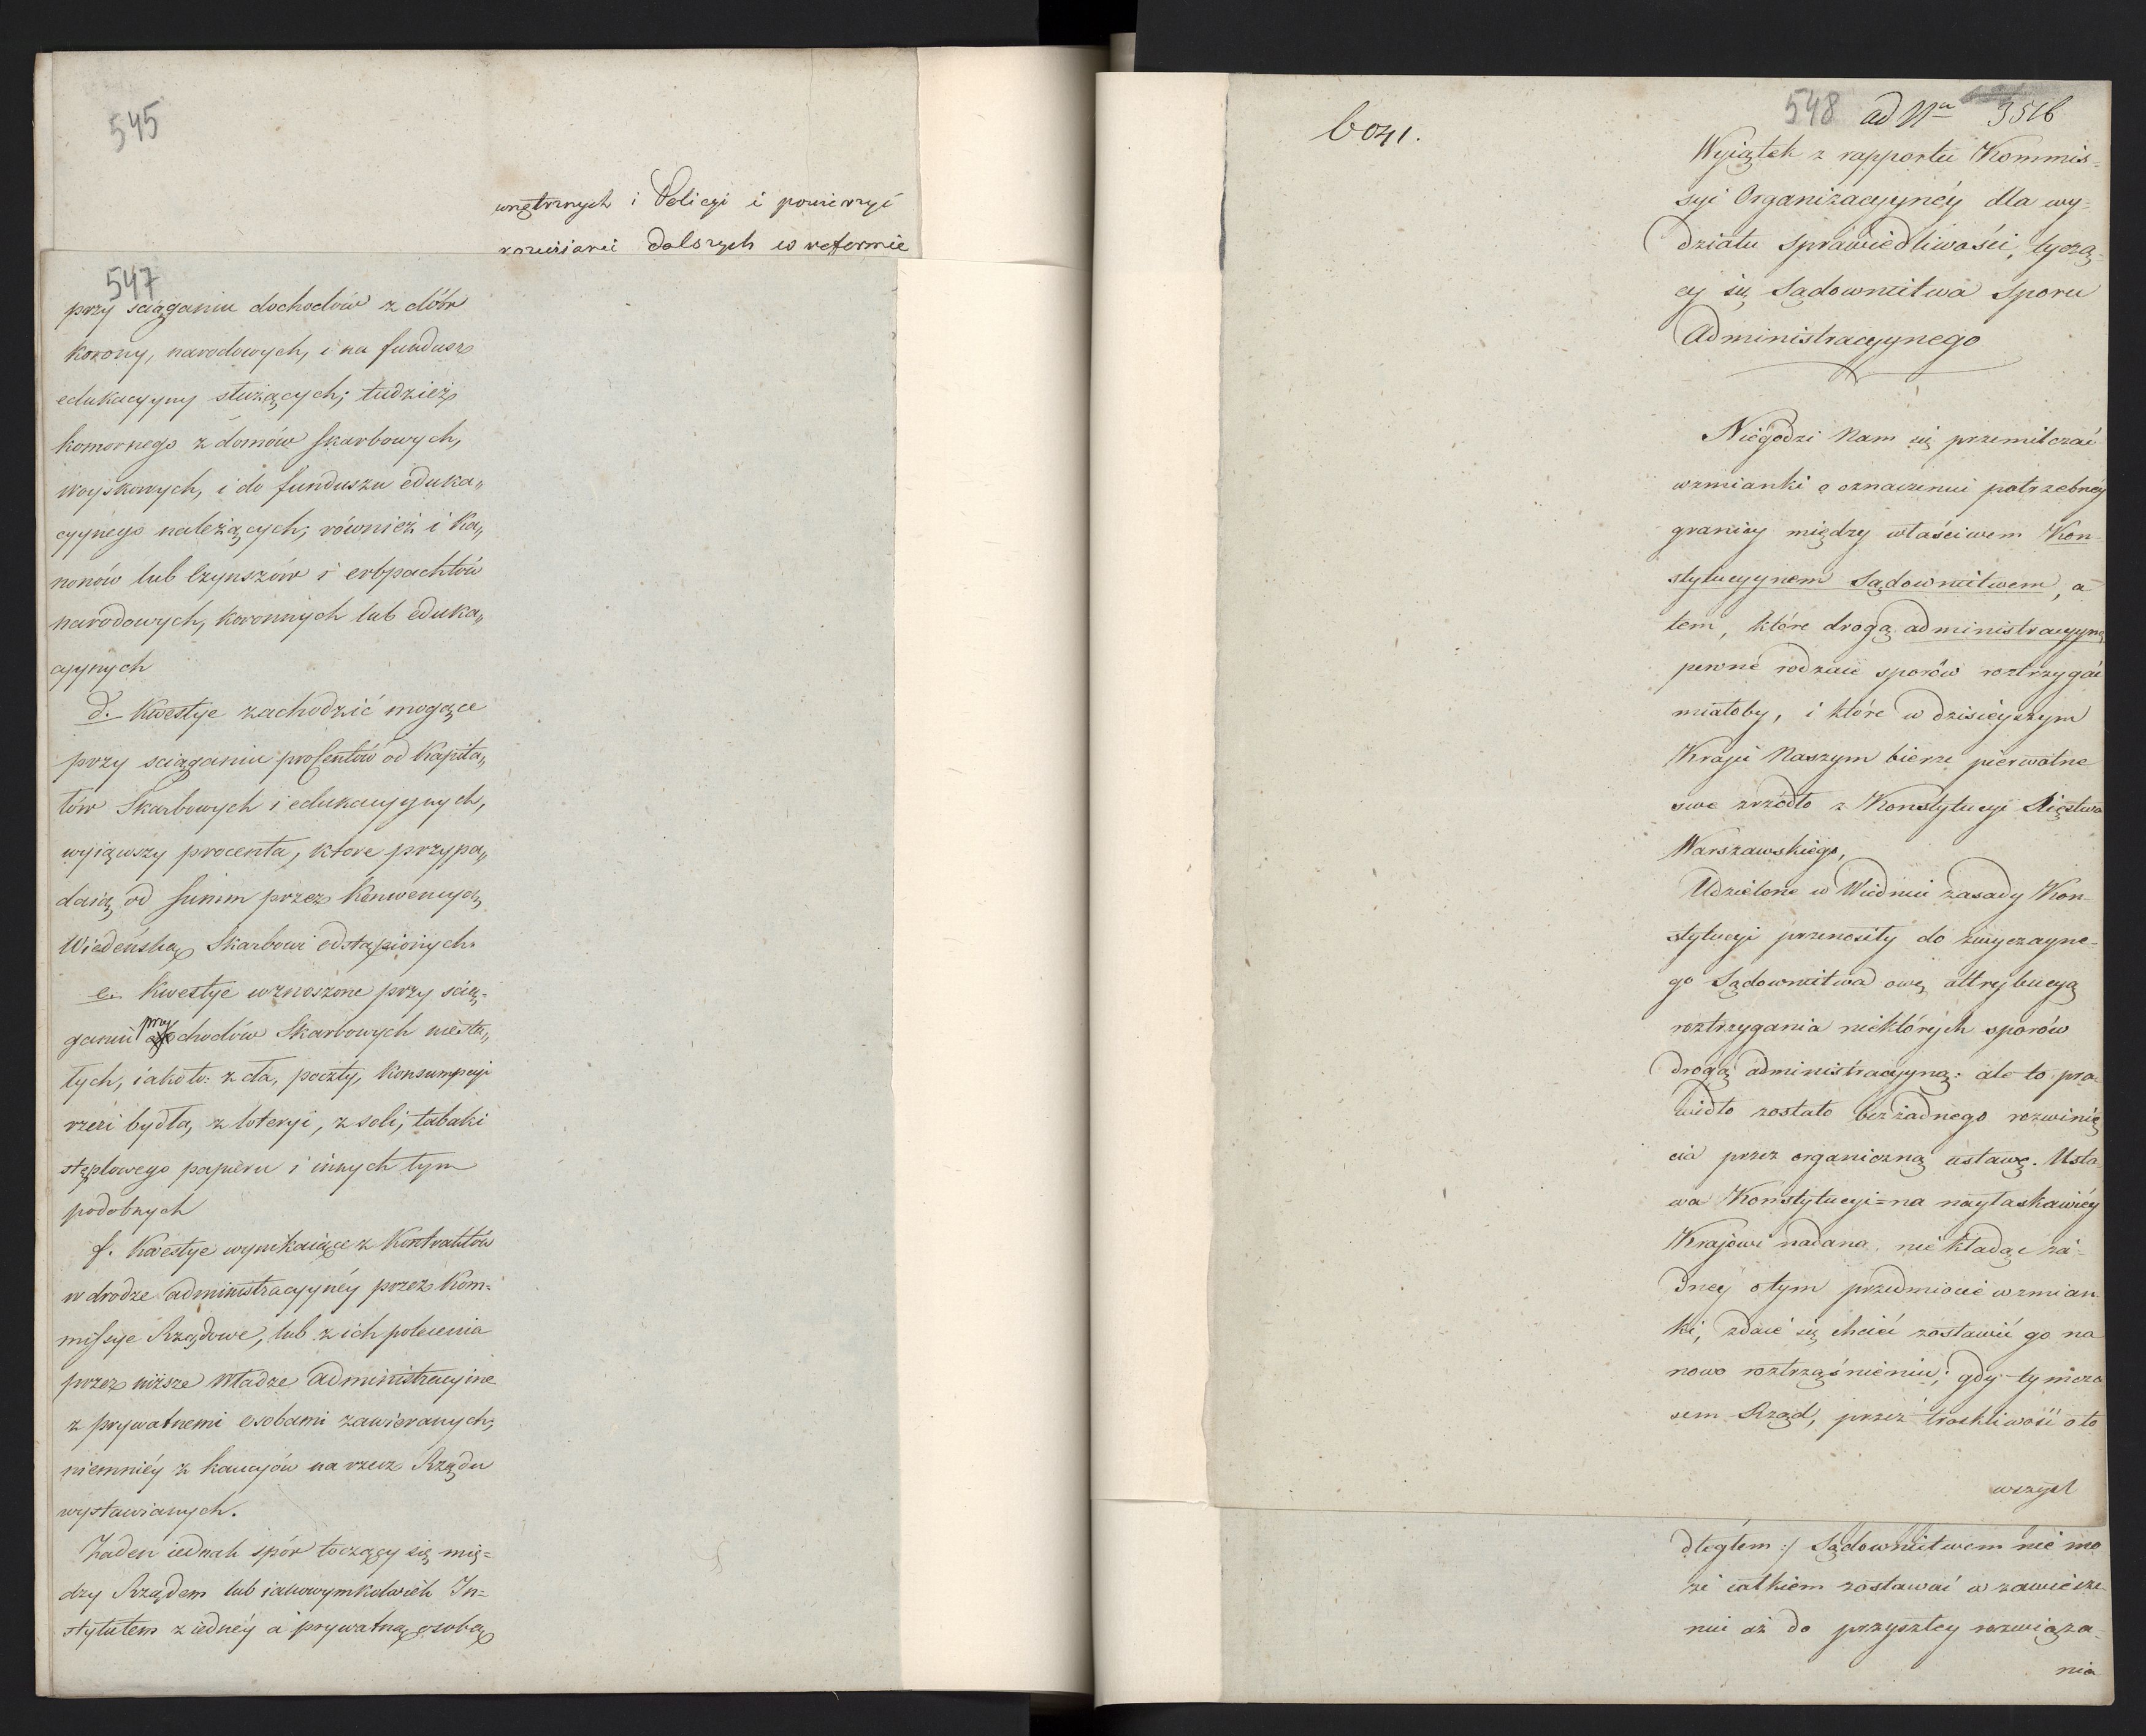 545
wnętrznych i Policyi i powierzyć
rozwijanie dalszych w reformie
547
przy sciąganiu dochodów z dóbr
korony, narodowych, i na fundusz
edukacyyny służących; tudzież
komornego z domów skarbowych,
woyskowych, i do funduszu eduka„
cyynego należących; również i ka„
nonów lub Czynszów i erbpachtów
narodowych, koronnych lub eduka„
cyynych
d. Kwestye zachodzić mogące
przy sciąganiu procentów od Kapita„
łów Skarbowych i edukacyynych,
wyiąwszy procenta, ktore przypa„
daią od summ przez Konwencyą
Wiedeńską Skarbowi odstąpionych.
e. Kwestye wznoszone przy scią=
ganiu przychodów Skarbowych niesta„
łych, iako to: z cła, poczty, konsumpcyi
rzezi bydła, z loteryi, z soli, tabaki
stęplowego papieru i innych tym
podobnych
f. Kwestye wynikaiące z Kontraktów
w drodze administracyynéy przez Kom=
missye Rządowe, lub z ich polecenia
przez niższe władze administracyine
z prywatnemi osobami zawieranych;
niemniéy z kaucyów na rzecz Rządu
wystawianych.
Żaden iednak spór toczący się mię=
dzy Rządem lub iakowymkolwiek In=
stytutem z iednéy a prywatną osobą
6041.
548 ad Nrm 3516
Wyiątek z rapportu Kommis=
syi Organizacyynéy dla wy=
działu Sprawiedliwości, tyczą=
cy się Sądownictwa Sporu
Administracyynego
Niegodzi Nam się przemilczać
wzmianki o oznaczeniu potrzebnéy
granicy między właściwem Kon=
stytucyynem Sądownictwem, a
tem, które drogą administracyyną
pewne rodzaie sporów roztrzygać
miałoby, i które w dzisieyszym
Kraju Naszym bierze pierwotne
swe zrzódło z Konstytucyi Xięstwa
Warszawskiego,
Udzielone w Wiedniu zasady Kon=
stytucyi przenosiły do zwyczayne=
go Sądownictwa owę attrybucyą
roztrzygania niektórych sporów
drogą administracyyną: ale to pra=
widło zostało bez żadnego rozwinię
cia przez organiczną ustawę. Usta
wa Konstytucyi=na nayłaskawiéy
Krajowi nadana, nie kładąc ża=
dney o tym przedmiocie wzmian
ki, zdaie się chcieć zostawić go na
nowo roztrząśnieniu; gdy tymcza
sem Rząd, przez troskliwość o to
wszyst
dległem :/ Sądownictwem nie mo
że całkiem zostawać w zawiesze=
niu aż do przyszłey rozwiąza=
nia